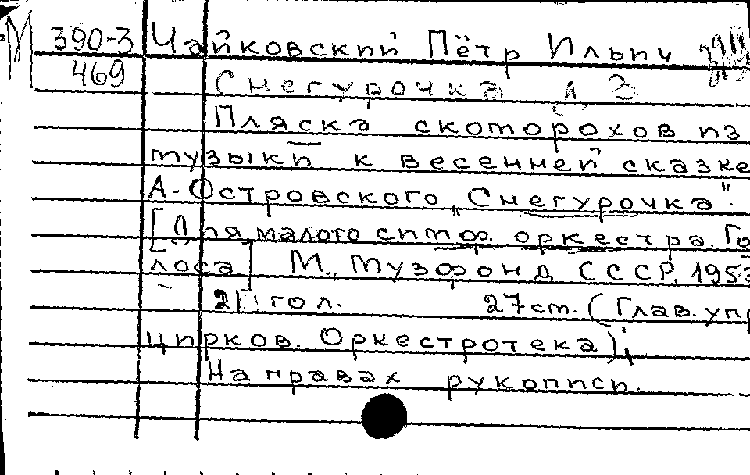 М 390-3 Чайковский Пётр Ильич
469 Снегурочка
Пляска скоморохов из
музыки к весенней сказке
А. Островского „Снегурочка".
[Для малого симф. оркестра. Го
лоса] М., Музфонд СССР, 1953
21 гол. 27 cm. (Глав. упр
цирков. Оркестротека);
На правах рукописи.